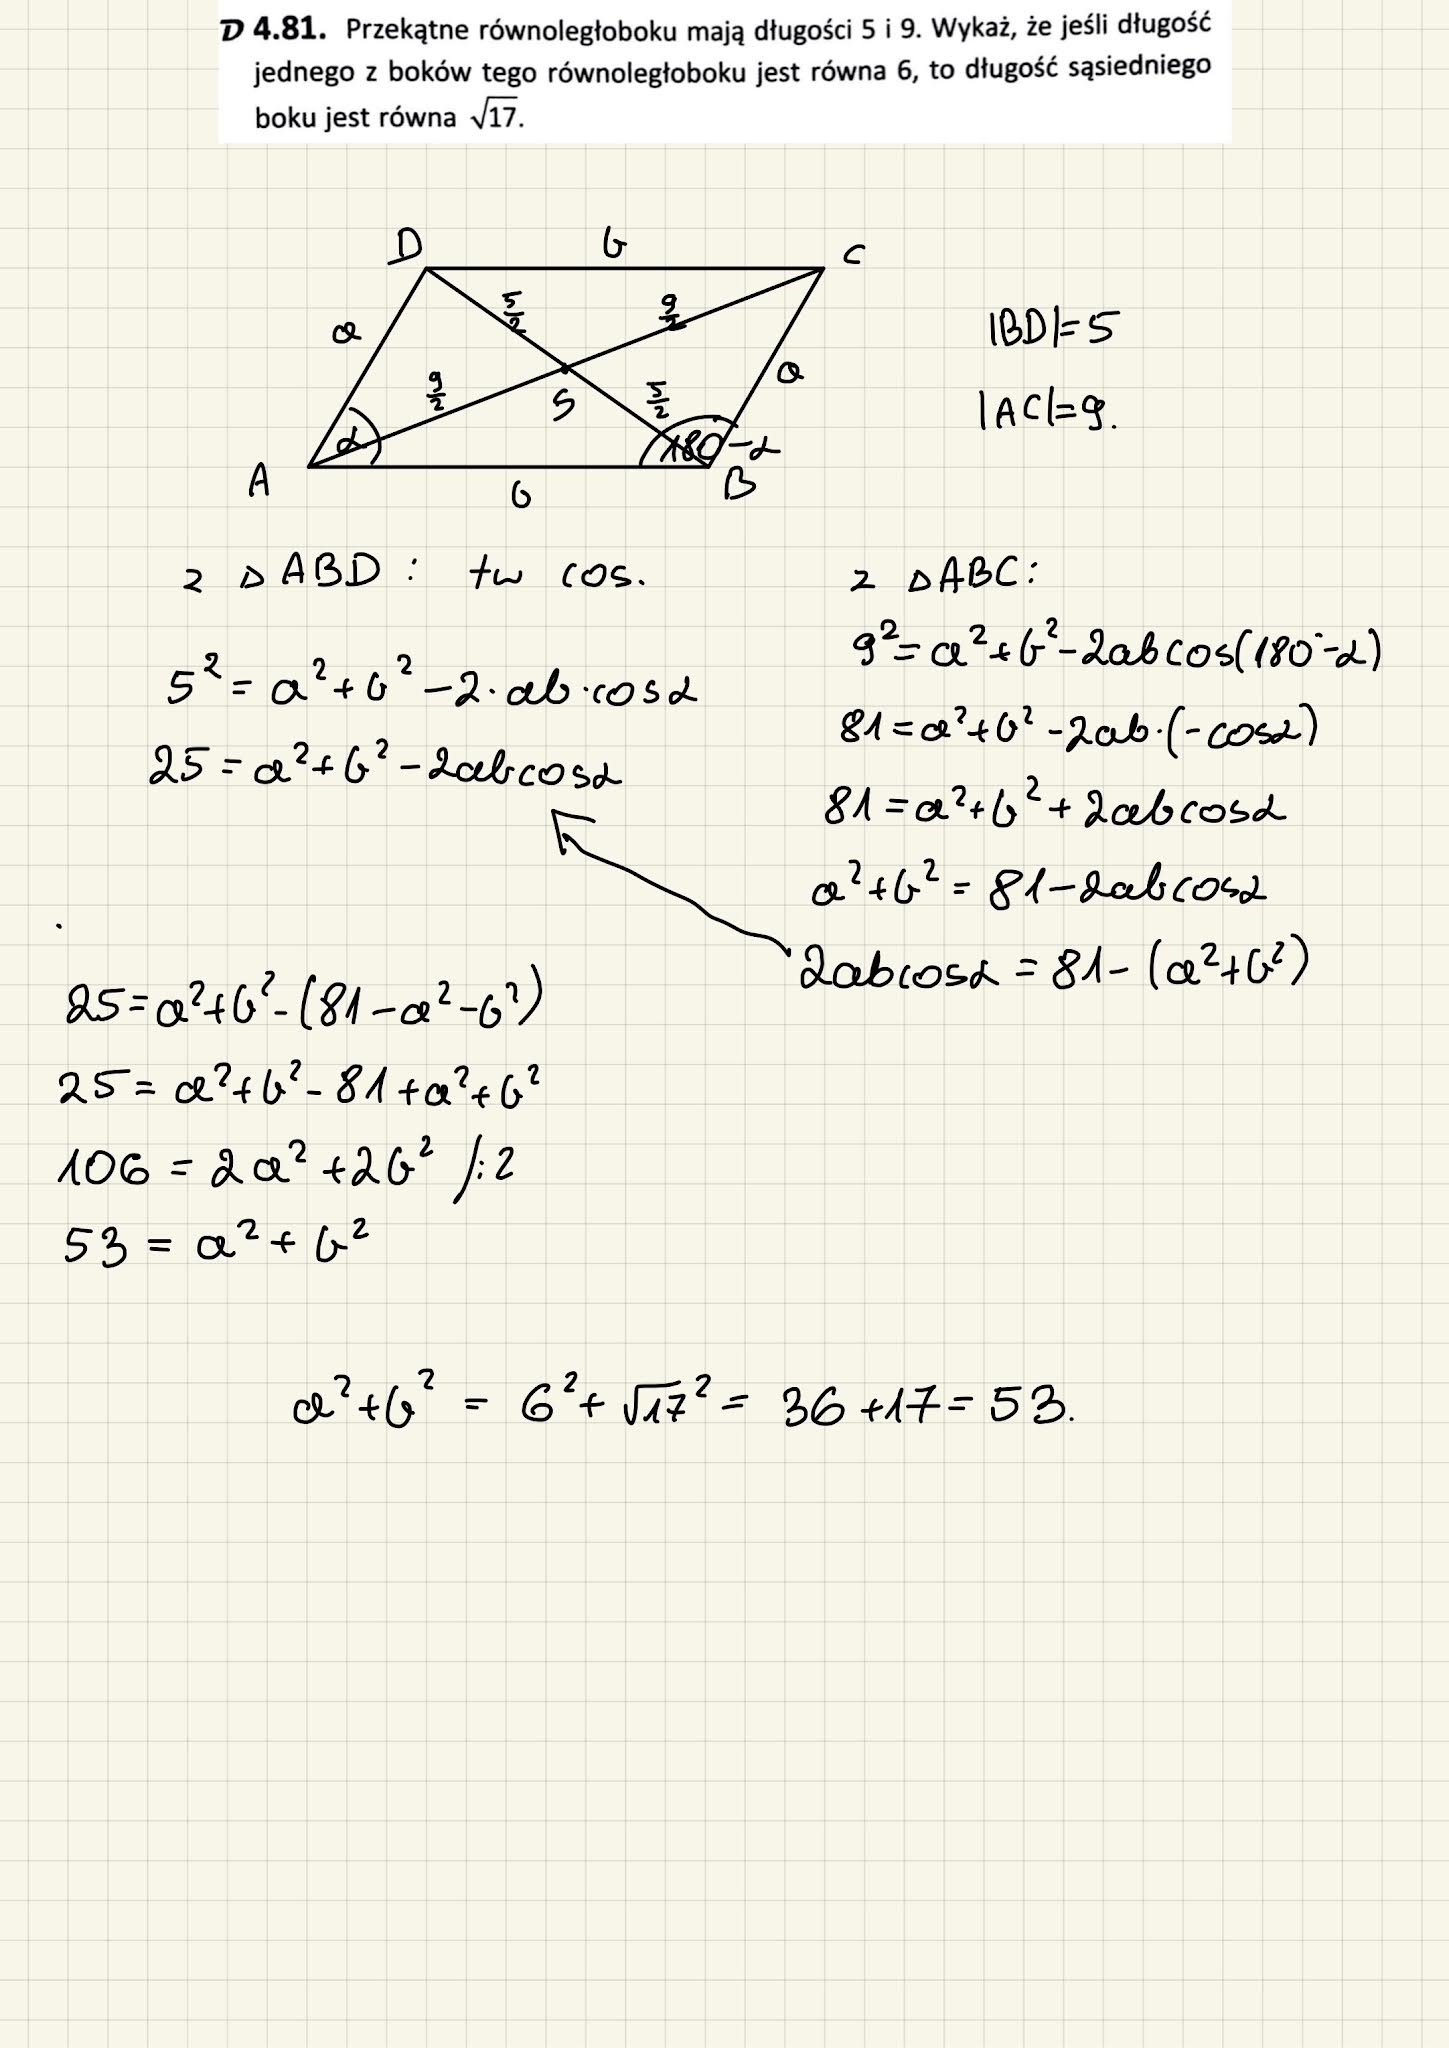 D 4.81. Przekątne równoległoboku mają długości 5 i 9. Wykaż, że jeśli długość
jednego z boków tego równoległoboku jest równa 6, to długość sąsiedniego
boku jest równa √17.
D b C
a 5/2 9/2 a
9/2 S 5/2
α 180°-α
A b B
|BD|=5
|AC|=9.
z △ABD: tw cos.
5² = a²+b²-2·ab·cosα
25 = a²+b²-2abcosα
z △ABC:
9²=a²+b²-2abcos(180°-α)
81=a²+b²-2ab·(-cosα)
81=a²+b²+2abcosα
a²+b²=81-2abcosα
2abcosα=81-(a²+b²)
25=a²+b²-(81-a²-b²)
25=a²+b²-81+a²+b²
106=2a²+2b² /:2
53=a²+b²
a²+b² = 6²+√17² = 36+17=53.